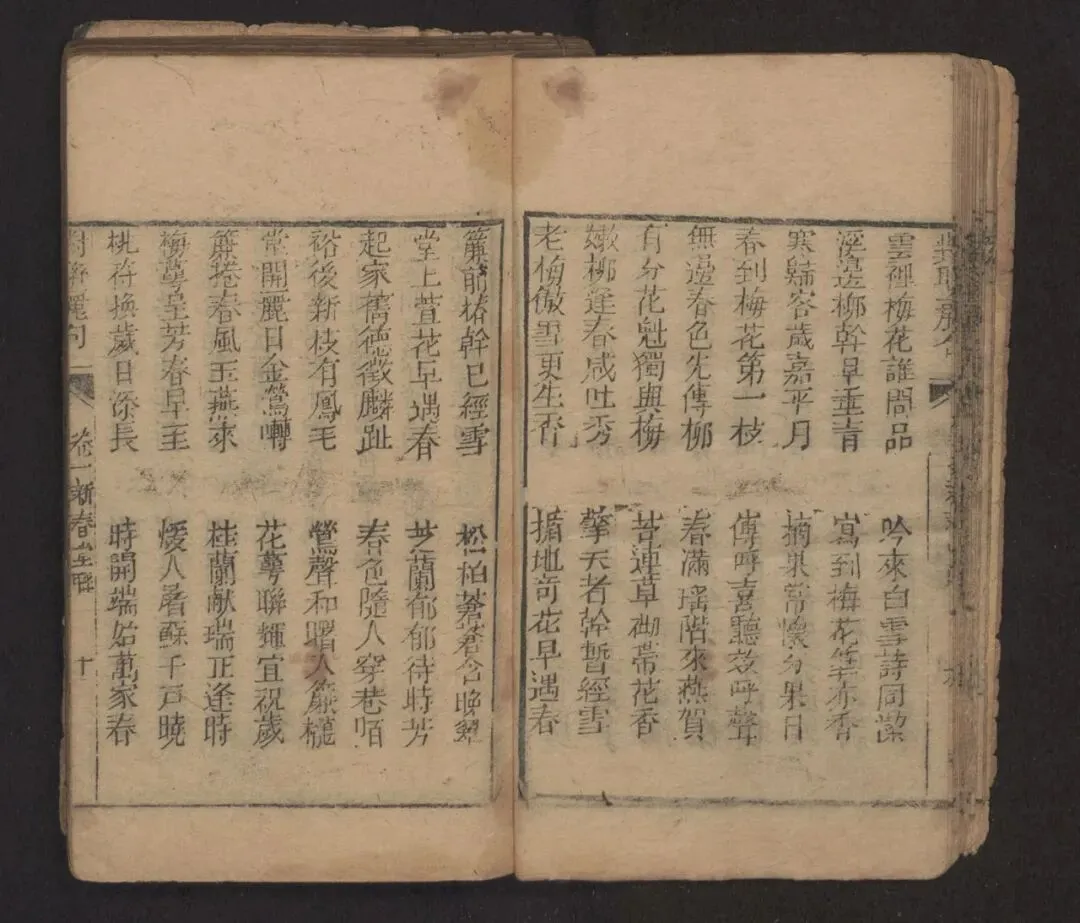 雲裡梅花誰問品
溪邊柳幹早垂青
寒歸客歲嘉平月
春到梅花第一枝
無邊春色先傳柳
有分花魁獨與梅
嫩柳逢春咸吐秀
老梅傲雪更生香
吟來白雪詩同潔
寫到梅花筆亦香
摘果常懷分果日
傳呼喜聽發呼聲
春滿瑶階來燕賀
苔連草砌帶花香
擎天老幹暫經雪
揷地奇花早遇春
簾前椿幹已經雪
堂上萱花早遇春
起家舊德徵麟趾
裕後新枝有鳳毛
堂開麗日金鶯囀
簾捲春風玉燕來
梅萼呈芳春早至
桃符換歲日添長
松柏蒼蒼含晚翠
芝蘭郁郁待時芳
春色隨人穿巷陌
鶯聲和曙入簾櫳
花萼聯輝宜祝歲
桂蘭献瑞正逢時
煖入屠蘇千戸曉
時開端始萬家春
對聯麗句
卷一新春堂聯
十